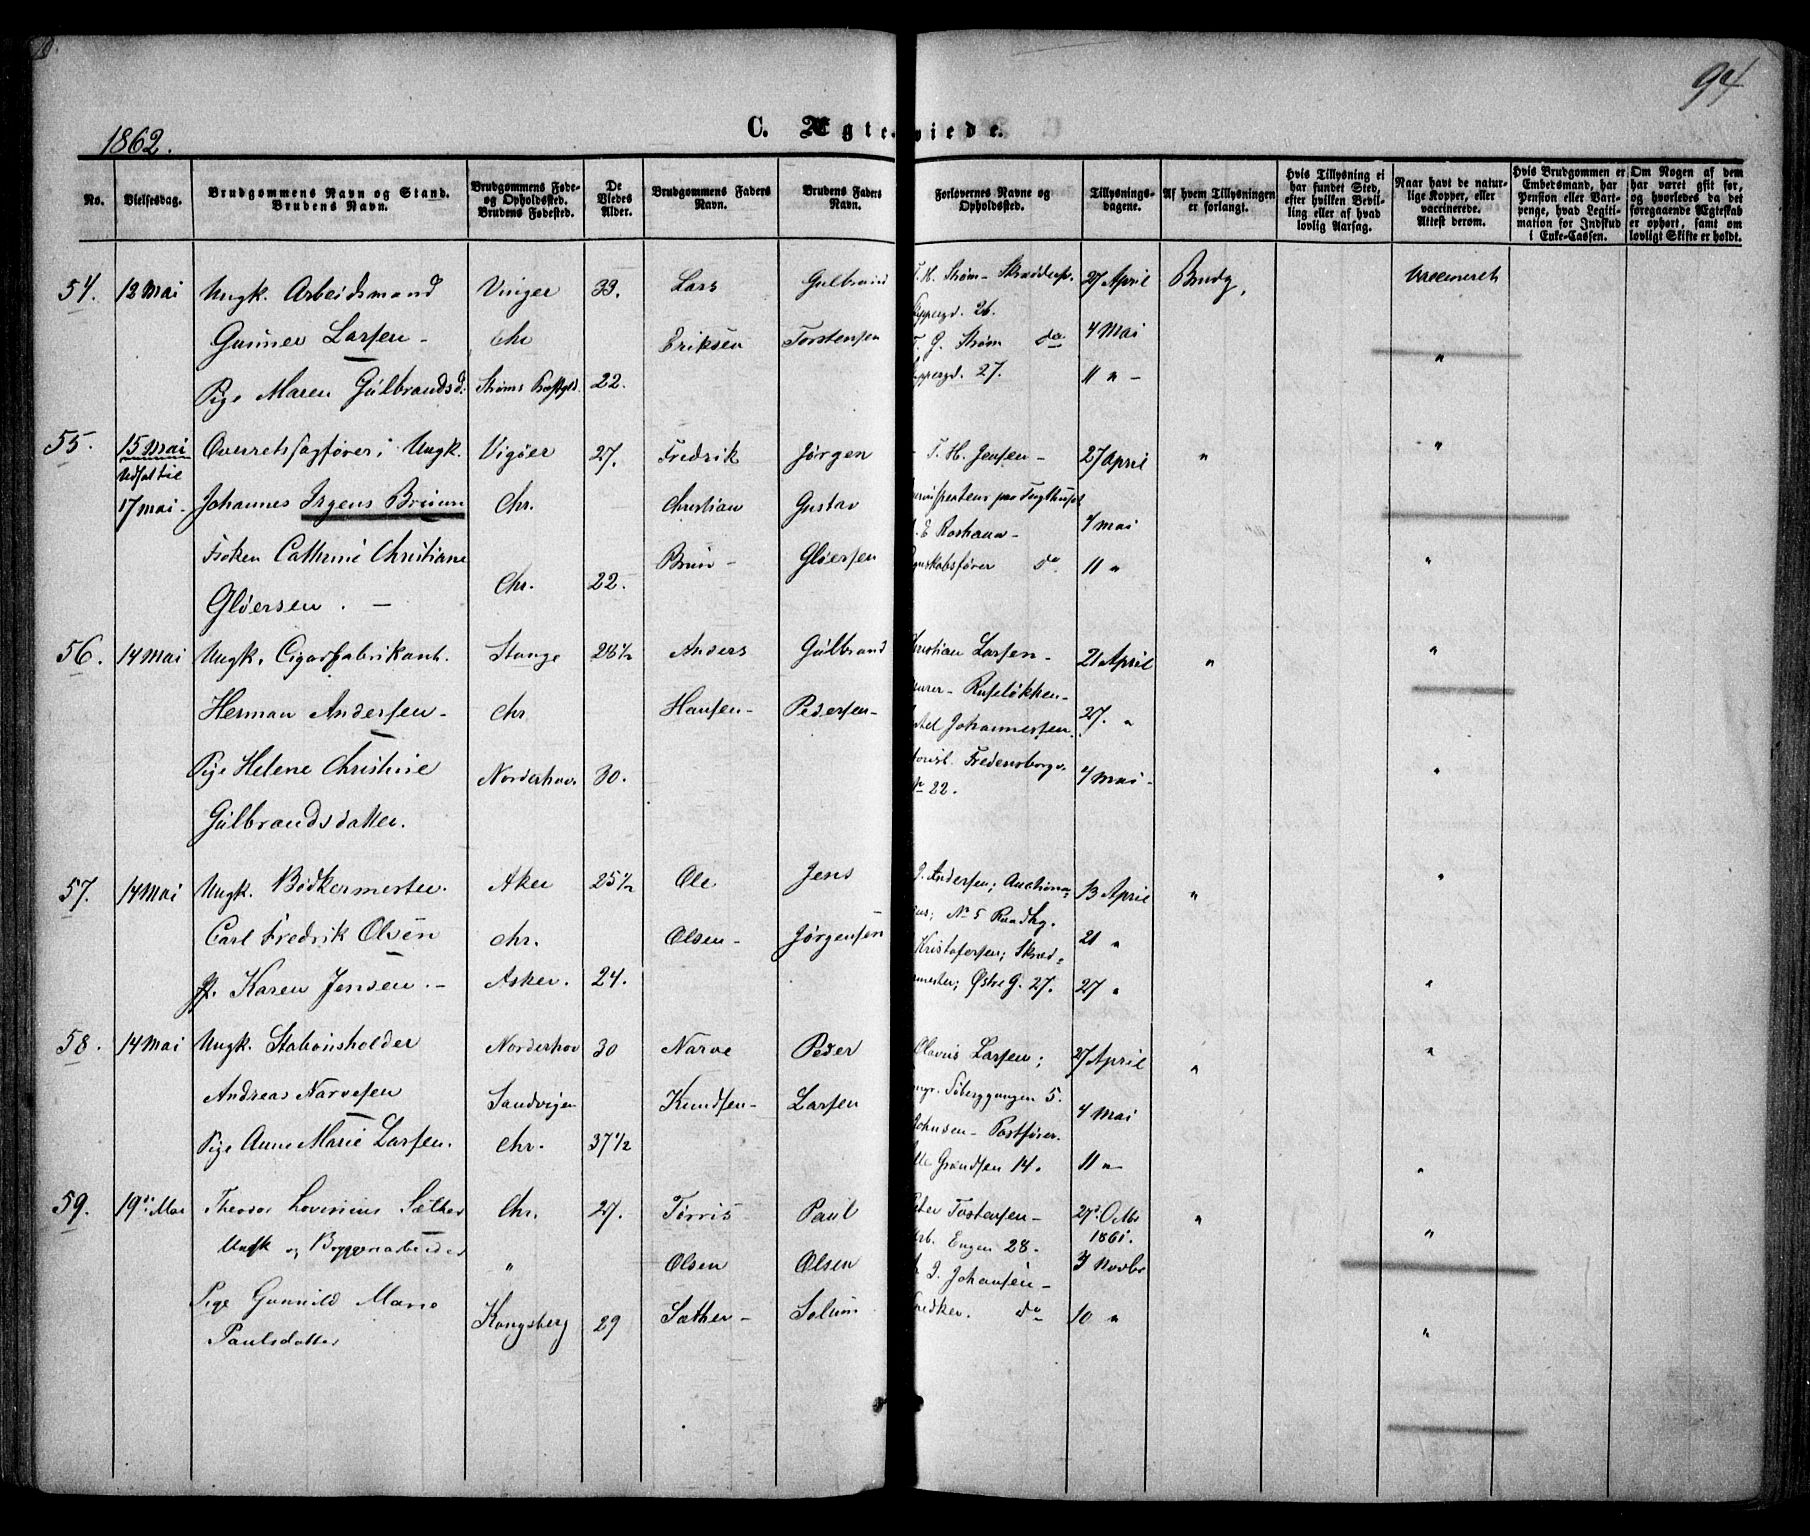 94
1862.
C. Ægteviede.
No.
Vielsesdag.
Brudgommens Navn og Stand.
Brudens Navn.
Brudgommens Føde-
og Opholdssted.
Brudens Fødested.
De
Viedes
Alder.
Brudgommens Faders
Navn.
Brudens Faders
Navn.
Forlovernes Navne og
Opholdssted.
Tillysnings-
dagene.
Af hvem Tillysningen
er forlangt.
Hvis Tillysning ei
har fundet Sted,
efter hvilken Bevil-
ling eller af hvad
lovlig Aarsag.
Naar havt de natur-
lige Kopper, eller
vaccinerede.
Attest derom.
Hvis Brudgommen er
Embedsmand, har
Pension eller Vart-
penge, hvad Legiti-
mation for Indskud
i Enke-Cassen.
Om Nogen af dem
har været gift før,
og hvorledes da det
foregaaende Ægteskab
er ophørt, samt om
lovligt Skifte er holdt.
54. 12 Mai Ungk. Arbeidsmand Vinger 33. Lars Gulbrand T. H. Strøm - 27 April Brudg.
26.
Gunner Larsen - Chr Eriksen Torstensen G. Strøm do 4 Mai "
Pige Maren Gulbrandsd. Strøms 22. 27. 11 " -
55. 15 Mai Overretssagfører; Ungk. Vigøer 27. Fredrik Jørgen T. H. Jensen - 27 April " "
Udsat til
17 mai - Johannes Irgens Bruun Chr. Christian Gustav 4 mai
Frøken Cathrine Christiane Bruun - Gløersen "
Chr. 22. do 11 "
Gløersen. -
56. 14 Mai Ungk. Cigarfabrikant. Stange 28½ Anders Gulbrand Christian Larsen - 21 April " "
Ruseløkken -
Herman Andersen - Chr Hansen - Pedersen - Johannessen. 27. "
Pige Helene Christine Norderhov 30. Fredensborgv. 4 Mai - "
22.
Gulbrandsdatter.
57. 14 Mai Ungk. Bødkermester Aker 25½ Ole Jens J. Andersen; 13 April " "
No 5
Carl Fredrik Olsen Chr. Olsen - Jørgensen Kristofersen; 21 "
P. Karen Jensen. - Asker. 24. Østre G. 27. 27 " "
58. 14 Mai Ungk. Stationsholder Norderhov 30 Narve Peder Olavus Larsen; 27 April " "
Andreas Narvesen Sandvigen Knudsen - Larsen 5. 4 Mai
Johnsen - Postfører.
Pige Anne Marie Larsen. Chr. 37½ Grændsen 14. 11 " - "
59. 19de Mai Theodor Sæther Chr. 27. Tørris Paul Peter Tostensen - 27 Octbr "
1861.
Ungk og " Olsen Olsen Engen 28. "
J. Johansen - 3 Novbr
Pige Gunnild Marie
Kongsberg 29 Sæther - Solum Snedker. do 10 " "
Paulsdatter